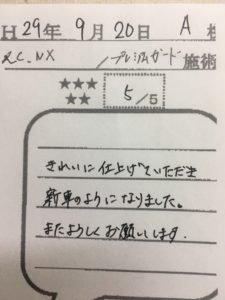 H29年9月20日 A 様
R.C.NX /プレミアムガード 施術
★★★
★★
5/5
きれいに仕上げていただき
新車のようになりました。
またよろしくお願いします.